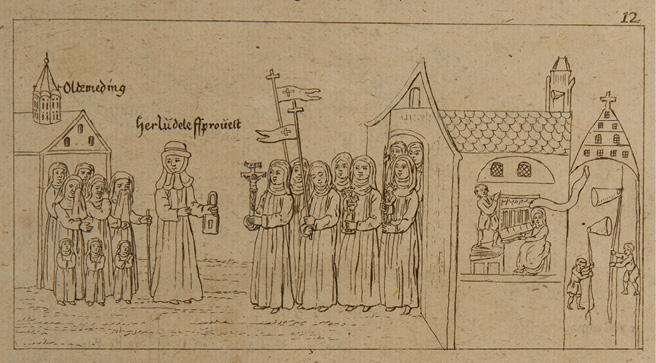 12
Oldemeding
her lüdeleff proveſt